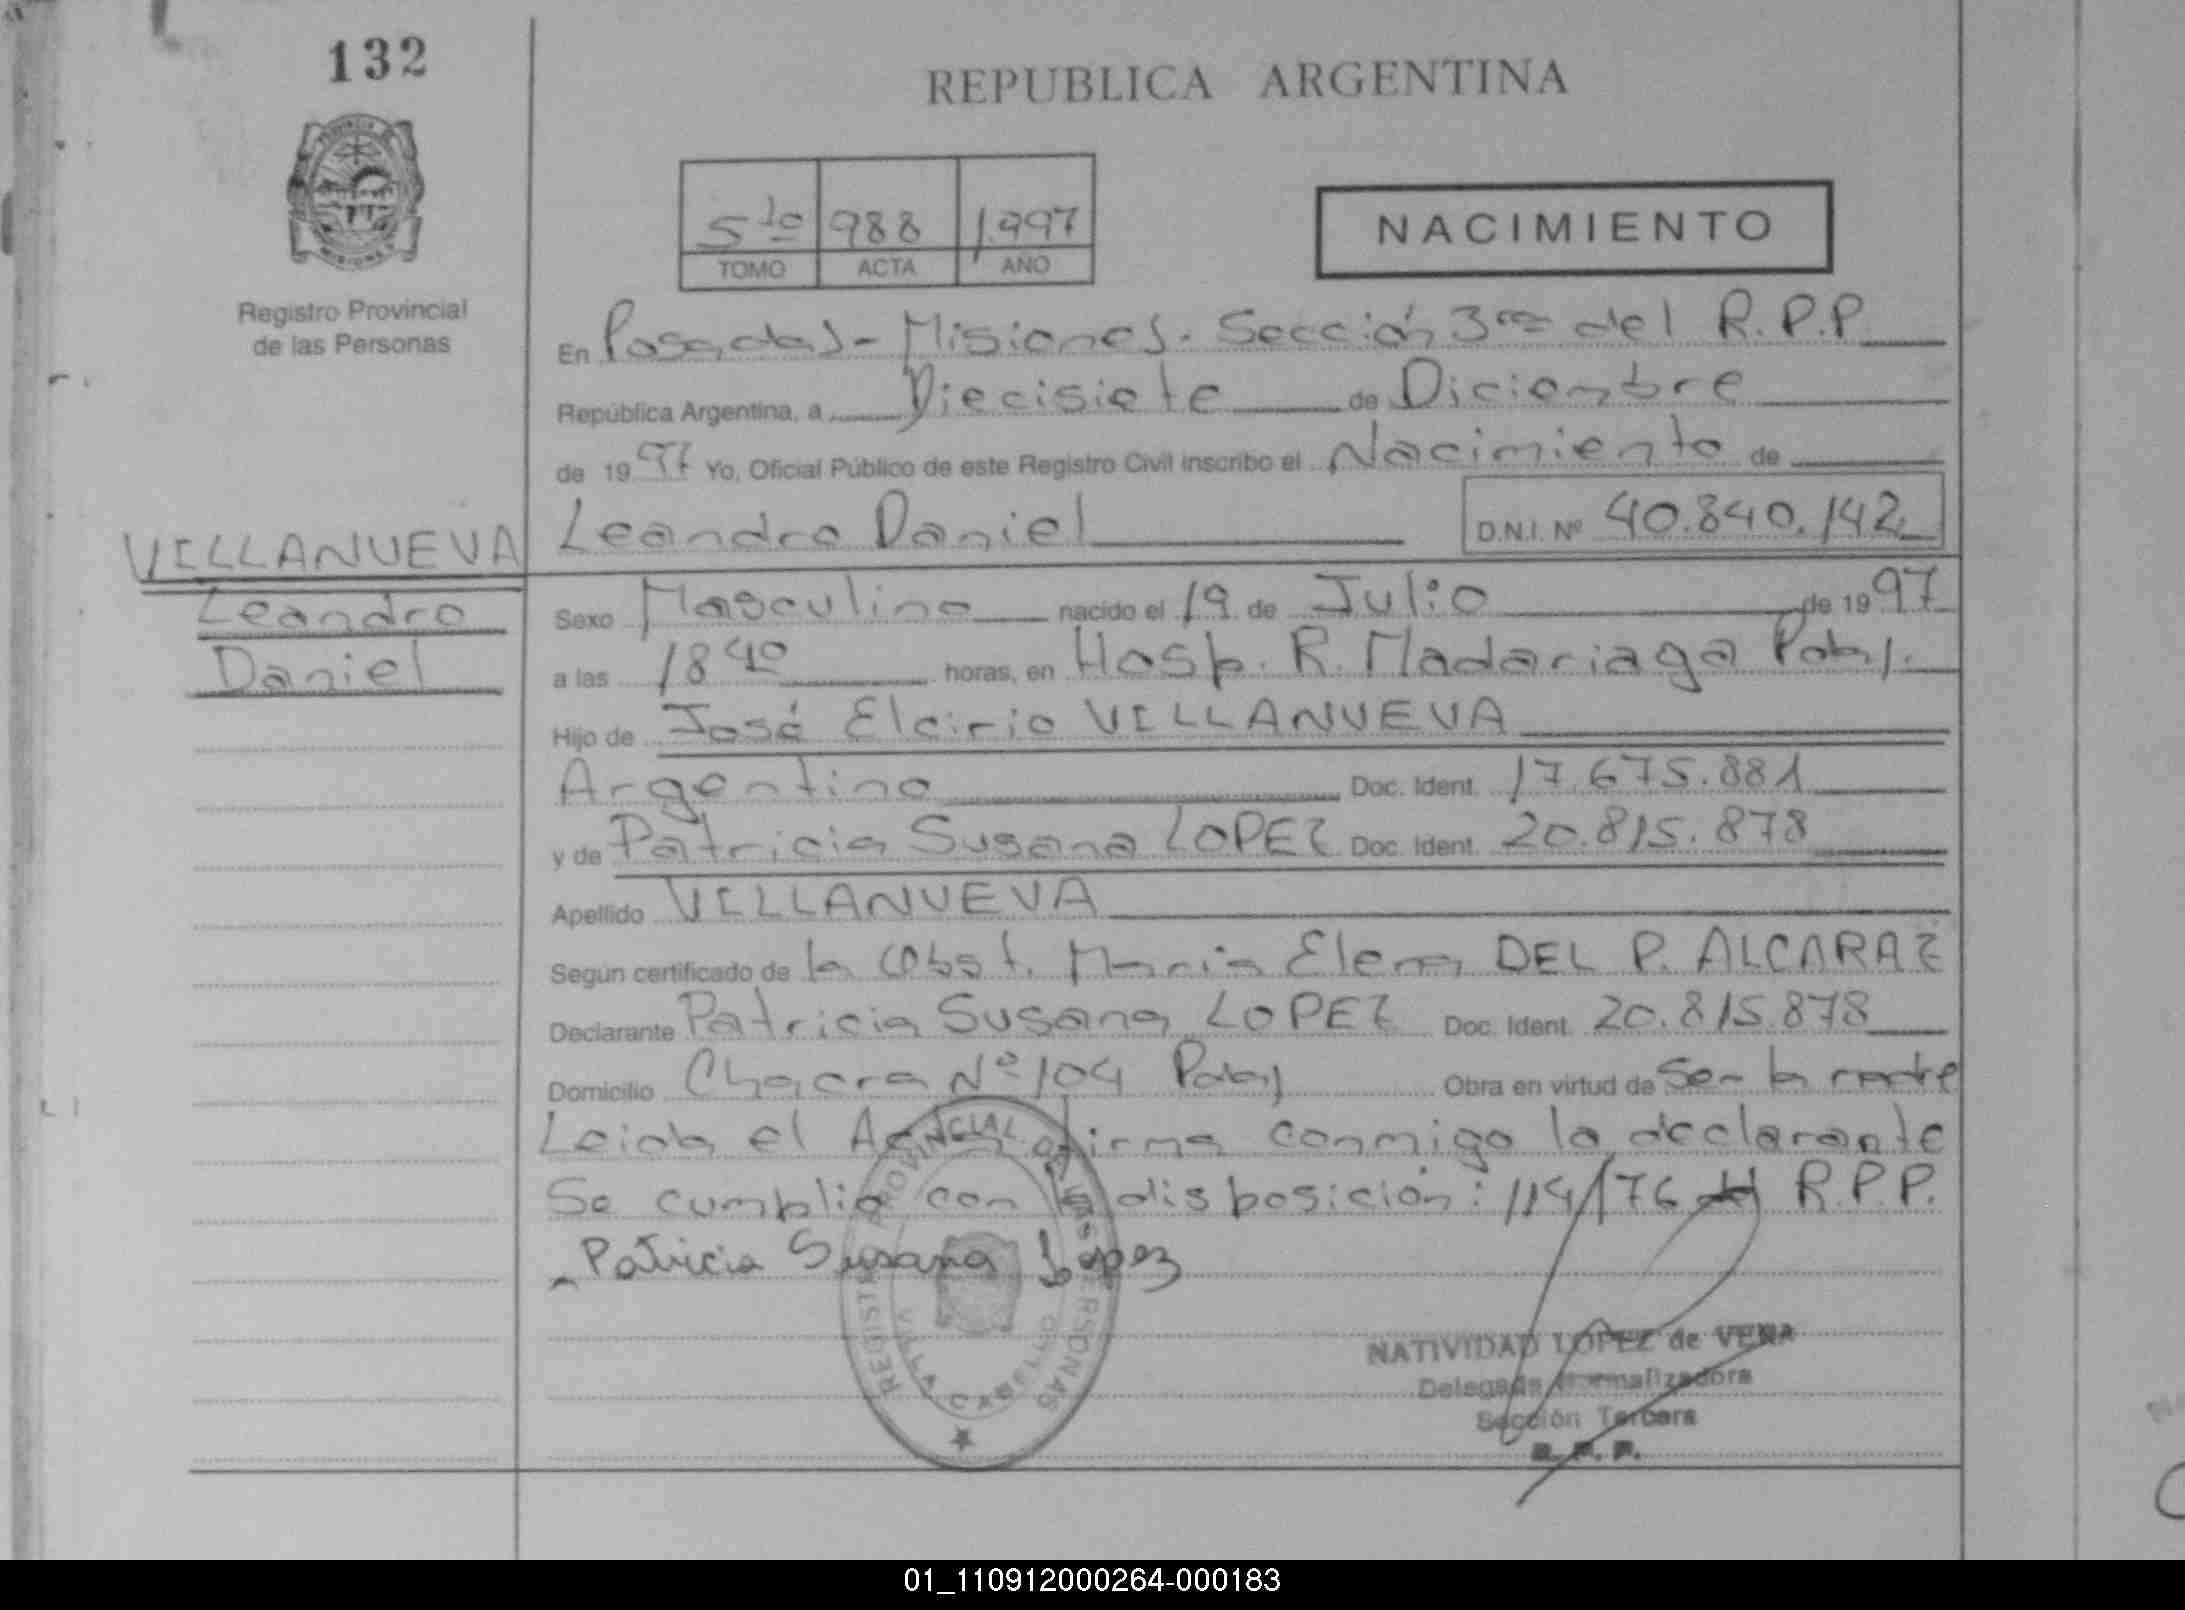 132
REPUBLICA ARGENTINA
5to 988 1.997
TOMO ACTA AÑO
NACIMIENTO
Registro Provincial
de las Personas
En Posadas - Misiones. Sección 3ra del R.P.P
República Argentina, a Diecisiete de Diciembre
de 1997 Yo, Oficial Público de este Registro Civil inscribo el Nacimiento de
VILLANUEVA
Leandro
Daniel
Leandro Daniel D.N.I. Nº 40.840.142
Sexo Masculino nacido el 19 de Julio de 1997
a las 18 40 horas, en Hosp. R. Madariaga Pdas.
Hijo de José Elcirio VILLANUEVA
Argentino Doc. Ident. 17.675.881
y de Patricia Susana LOPEZ Doc. Ident. 20.815.878
Apellido VILLANUEVA
Según certificado de la Obst. Maria Elena DEL P. ALCARAZ
Declarante Patricia Susana LOPEZ Doc. Ident. 20.815.878
Domicilio Chacra Nº 104 Pdas Obra en virtud de Ser la madre
Leida el Acta firma conmigo la declarante
Se cumplio con la disposición: 114/76 R.P.P.
Patricia Susana Lopez
REGISTRO PROVINCIAL DE LAS PERSONAS
VILLA CABELLO
NATIVIDAD LOPEZ de VERA
Delegada Normalizadora
Sección Tercera
R. P. P.
01_110912000264-000183